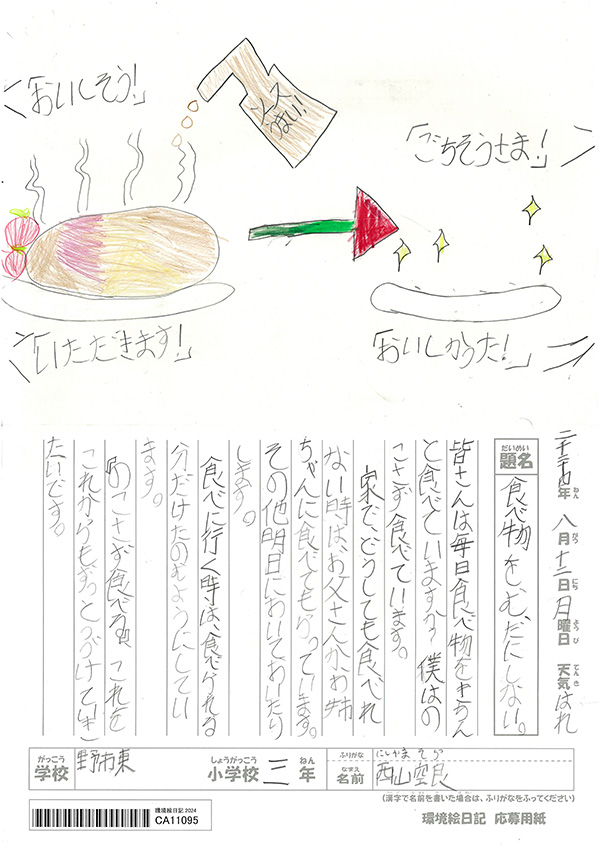 「おいしそう!」
ソース
うまい!!
「ごちそうさま!」
「いただきます!」
「おいしかった!」
二千二十四年 八月十二日 月曜日 天気 はれ
ねん がつ にち ようび てんき
だいめい
題名 食べ物をむだにしない。
皆さんは毎日食べ物をきちん
と食べていますか？僕はの
こさず食べています。
家で、どうしても食べれ
ない時は、お父さんかお姉
ちゃんに食べてもらっています。
その他明日においておいたり
します。
食べに行く時は、食べられる
分だけたのむようにしてい
ます。
「のこさず食べる」、これを
これからもずっとつづけていき
たいです。
がっこう しょうがっこう ねん
学校 野市東 小学校 三 年
ふりがな にしやま そら
なまえ
名前 西山空良
(漢字で名前を書いた場合は、ふりがなをふってください)
環境絵日記 2024
CA11095
環境絵日記 応募用紙